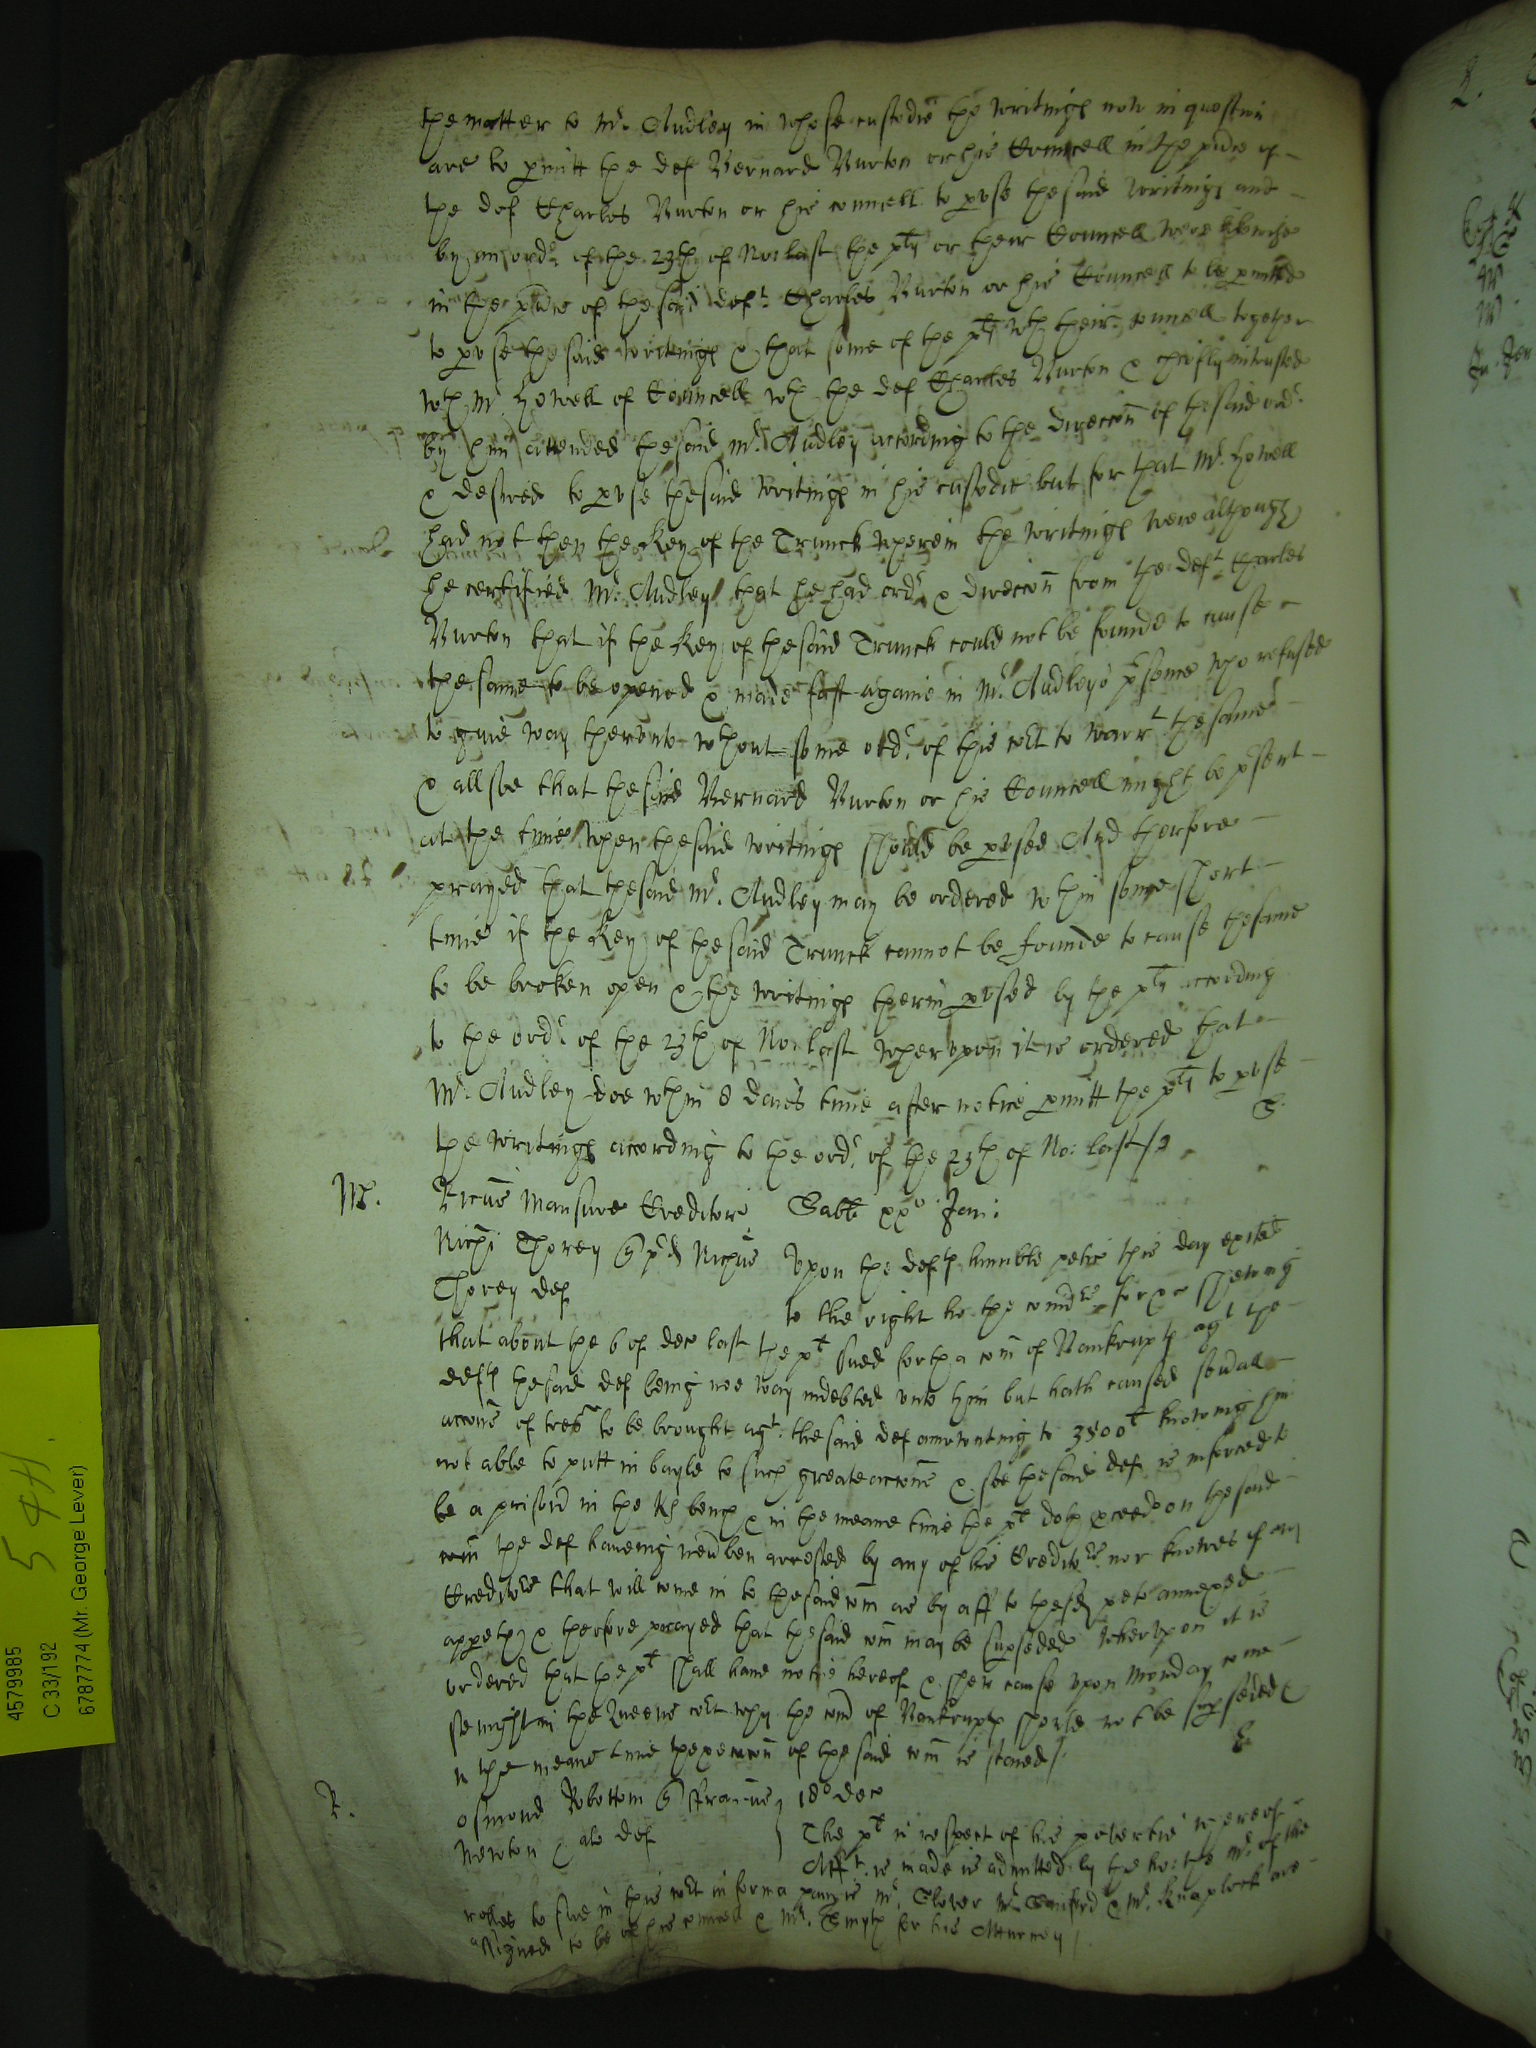 the matter to Mr. Audley in whose custodie the writings now in question
are to pmitt the def Bernard Burton or his Councell in the pñce of
the def Charles Burton or his councell to pvse the said writings and
by an ordr of the 23th of No: last the plt or their Councell were likewise
in the pñce of the said deft Charles Burton or his Councell to be pmitted
to pvse the said writings & that some of the plt wth their councell together
wth Mr Howell of Councell wth the def Charles Burton & chiefly intrusted
by him attended the said Mr. Audley according to the direccon of the said ordr
& desired to pvse the said writings in his custodie but for that Mr. Howell
had not then the Key of the Trunck wherein the writings were although
he certified Mr. Audley that he had ordr & direccon from the deft Charles
Burton that if the Key of the said Trunck could not be founde to cause
the same to be opened & made fast againe in Mr. Audleys psence who refused
to give way therunto wthout some ordr of this cort to warrt the same
& allsoe that the said Bernard Burton or his Councell might be psent
at the time when the said writings should be pvsed And therfore
prayed that the said Mr. Audley may be ordered wthin some short
time if the Key of the said Trunck cannot be founde to cause the same
to be broken open & the writings therin pvsed by the plt according
to the ordr of the 23th of No: last wherupon it is ordered that
Mr. Audley doe wthin 8 daies time after notice pmitt the plt to pvse
the writings according to the ordr of the 23th of No: last /
Mr. Mansure Creditor Sabti xxo Jan:
Richi Thorey Richus Upon the defts humble petic this day exited
Thorey def to the right ho: the for &c shewing
that about the 6 of dec last the plt sued forth a com of Bankrupts agt the
deft the said def being noe way indebted unto him but hath caused seuall
accons of tres to be brought agt. the said def amounting to 3500l knowing him
not able to putt in bayle to such greate accons & soe the said def is inforced to
be a prisonr in the Ks bench & in the meane time the plt doth pceed on the said
com the def haveing neur ben arrested by any of his Creditors nor knowes of any
Creditors that will come in to the said com as by aff to the sd petic annexed
appeth & therfore prayed that the said com may be supseded wherupon it is
ordered that the plt shall have notice hereof & shew cause upon Monday come
senight in the Queens cort why the com of Bankrupts should not be supseded &
in the meane time the execucon of the said com is staied /
R. Osmond Robottom Francus } 18o dec
Newton & al def The plt in respect of his povertie whereof
Afft. is made is admitted by the ho: the Mr. of the
rolles to sue in this cort in forma paupis Mr. Glover Mr. Mr. Knaplock are
assigned to be of his councell & Mr. Smyth for his Atturney /
4579985
C 33/192
6787774 (Mr. George Lever)
544.